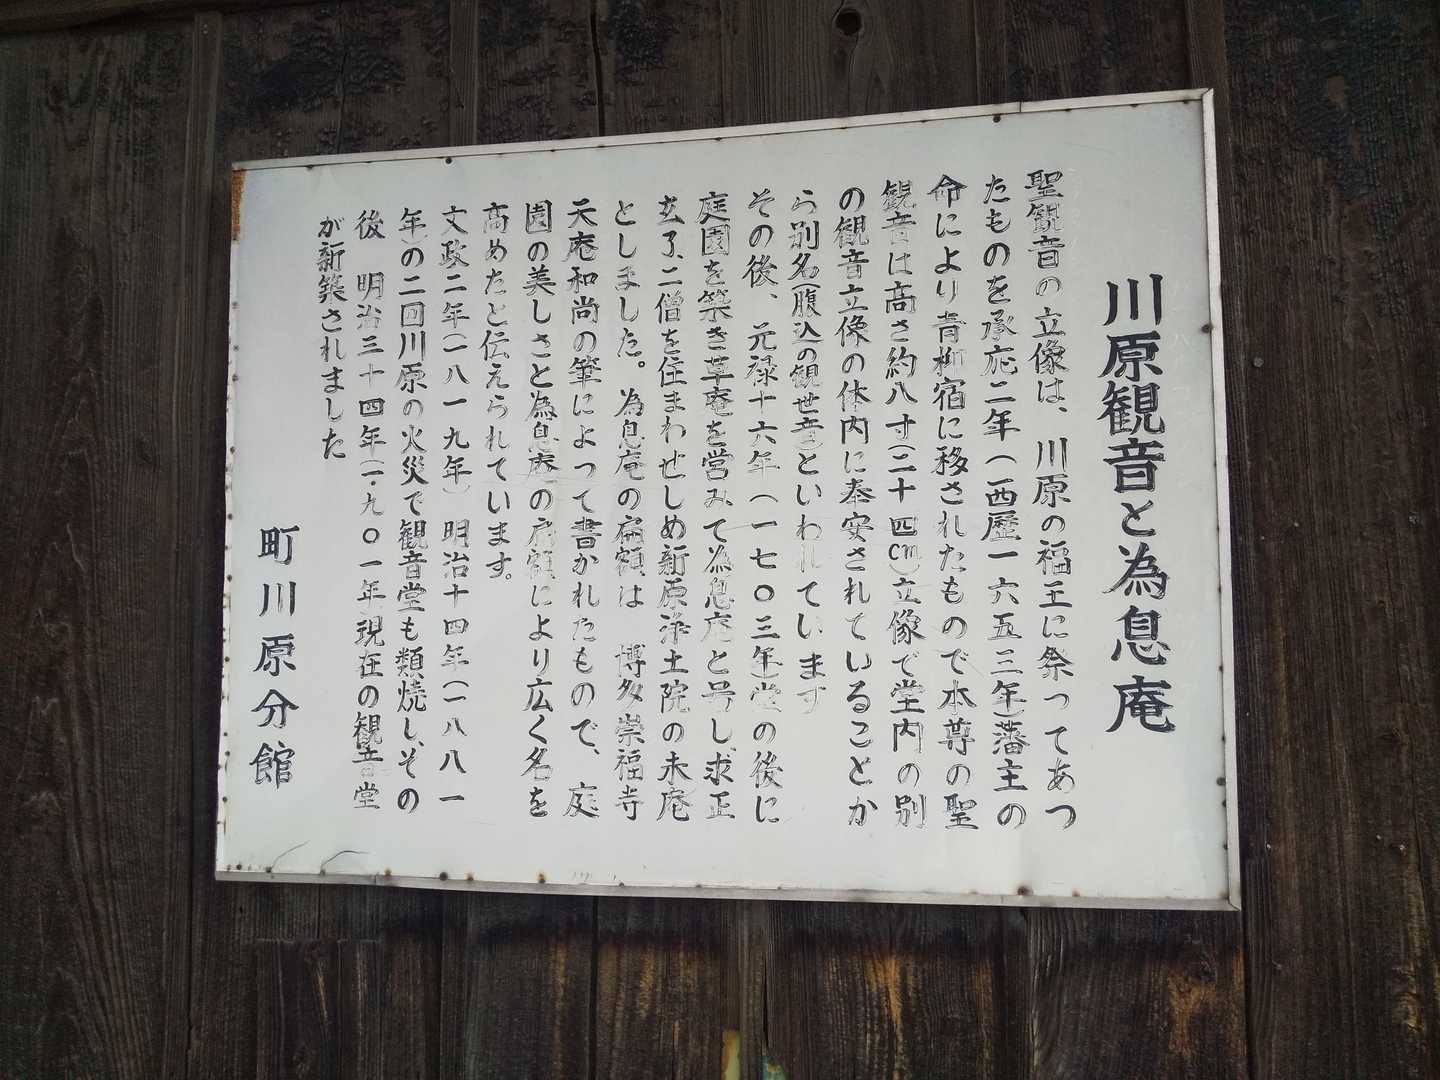 川原観音と為息庵
聖観音の立像は、川原の福王に祭ってあつ
たものを承応二年(西歴一六五三年)藩主の
命により青柳宿に移されたもので本尊の聖
観音は高さ約八寸(二十四cm)立像で堂内の別
の観音立像の体内に奉安されていることか
ら別名(腹込の観世音)といわれています
その後、元禄十六年(一七〇三年)堂の後に
庭園を築き草庵を営みて為息庵と号し、求正
玄了、二僧を住まわせしめ新原浄土院の末庵
としました。為息庵の扁額は 博多崇福寺
天庵和尚の筆によって書かれたもので、庭
園の美しさと為息庵の扁額により広く名を
高めたと伝えられています。
文政二年(一八一九年)明治十四年(一八八一
年)の二回川原の火災で観音堂も類焼し、その
後 明治三十四年(一九〇一年現在の観音堂
が新築されました
町川原分館